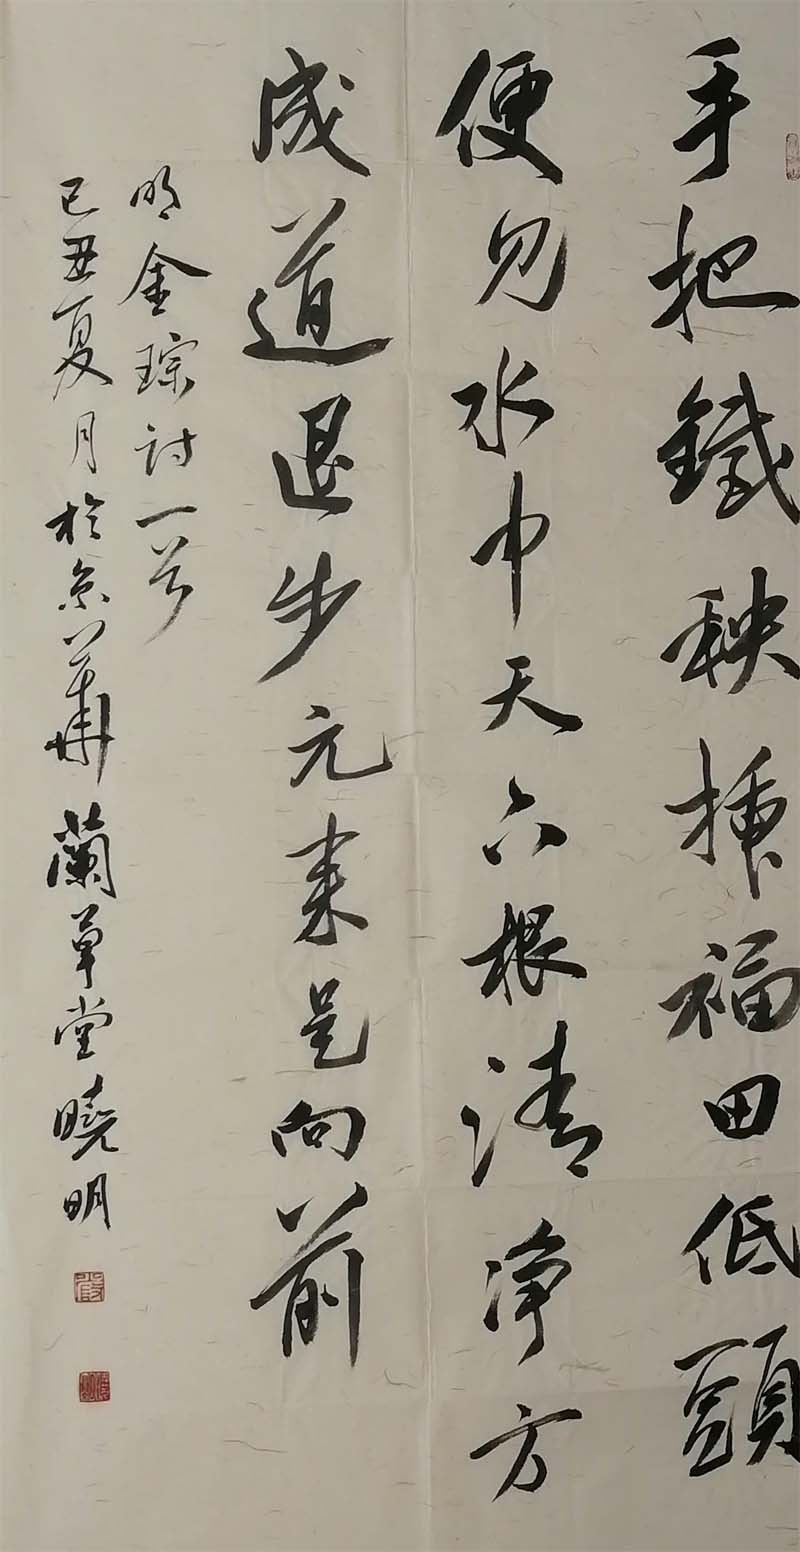 手把鐵秧插福田低頭
便見水中天六根清净方
成道退步元來是向前
明金琮詩一首
己丑夏月於京華蘭草堂曉明